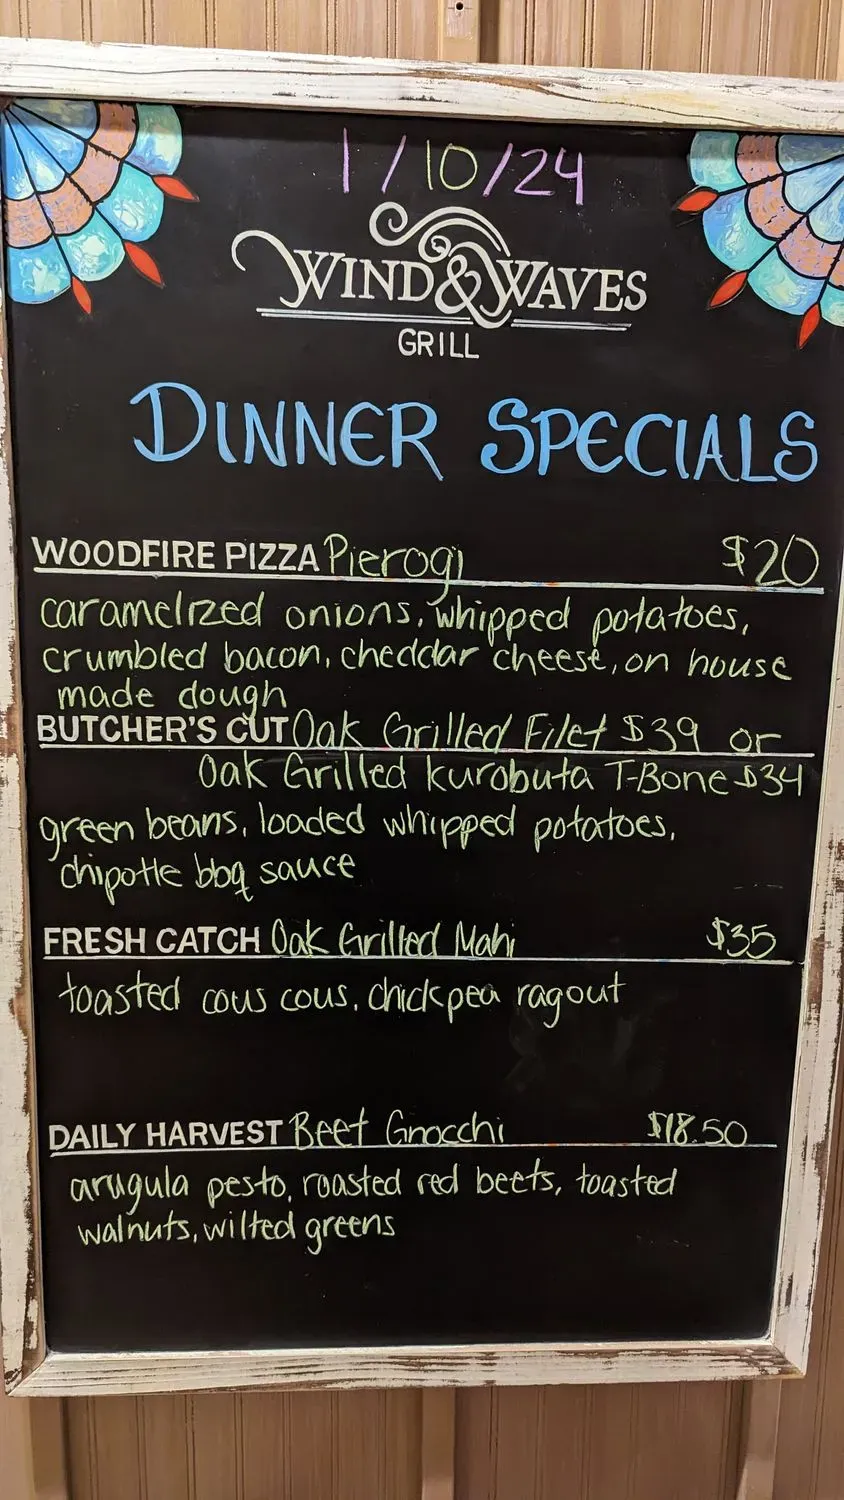 1/10/24
WIND & WAVES
GRILL
DINNER SPECIALS
WOODFIRE PIZZA Pierogi $20
caramelized onions, whipped potatoes,
crumbled bacon, cheddar cheese, on house
made dough
BUTCHER'S CUT Oak Grilled Filet $39 or
Oak Grilled Kurobuta T-Bone $34
green beans, loaded whipped potatoes,
chipotle bbq sauce
FRESH CATCH Oak Grilled Mahi $35
toasted cous cous, chickpea ragout
DAILY HARVEST Beet Gnocchi $18.50
arugula pesto, roasted red beets, toasted
walnuts, wilted greens